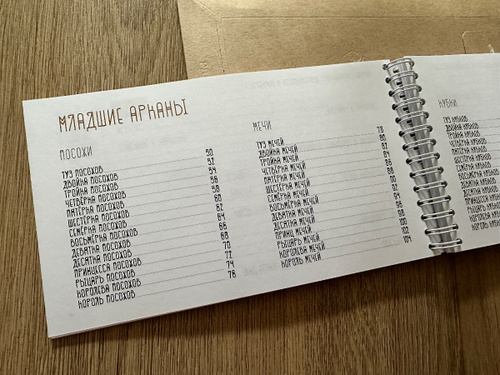 МЛАДШИЕ АРКАНЫ
ПОСОХИ
ТУЗ ПОСОХОВ 50
ДВОЙКА ПОСОХОВ 52
ТРОЙКА ПОСОХОВ 54
ЧЕТВЁРКА ПОСОХОВ 56
ПЯТЁРКА ПОСОХОВ 58
ШЕСТЁРКА ПОСОХОВ 60
СЕМЁРКА ПОСОХОВ 62
ВОСЬМЁРКА ПОСОХОВ 64
ДЕВЯТКА ПОСОХОВ 66
ДЕСЯТКА ПОСОХОВ 68
ПРИНЦЕССА ПОСОХОВ 70
РЫЦАРЬ ПОСОХОВ 72
КОРОЛЕВА ПОСОХОВ 74
КОРОЛЬ ПОСОХОВ 76
МЕЧИ
ТУЗ МЕЧЕЙ 78
ДВОЙКА МЕЧЕЙ 80
ТРОЙКА МЕЧЕЙ 82
ЧЕТВЁРКА МЕЧЕЙ 84
ПЯТЁРКА МЕЧЕЙ 86
ШЕСТЁРКА МЕЧЕЙ 88
СЕМЁРКА МЕЧЕЙ 90
ВОСЬМЁРКА МЕЧЕЙ 92
ДЕВЯТКА МЕЧЕЙ 94
ДЕСЯТКА МЕЧЕЙ 96
ПРИНЦ МЕЧЕЙ 98
РЫЦАРЬ МЕЧЕЙ 100
КОРОЛЕВА МЕЧЕЙ 102
КОРОЛЬ МЕЧЕЙ 104
КУБКИ
ТУЗ КУБКОВ
ДВОЙКА КУБКОВ
ТРОЙКА КУБКОВ
ЧЕТВЁРКА КУБКОВ
ПЯТЁРКА КУБКОВ
ШЕСТЁРКА
СЕМЁРКА
ВОСЬМЁРКА
ДЕВЯТКА КУБКОВ
ДЕСЯТКА КУБКОВ
ПРИНЦЕССА
РЫЦАРЬ КУБКОВ
КОРОЛЕВА
КОРОЛЬ КУБКОВ